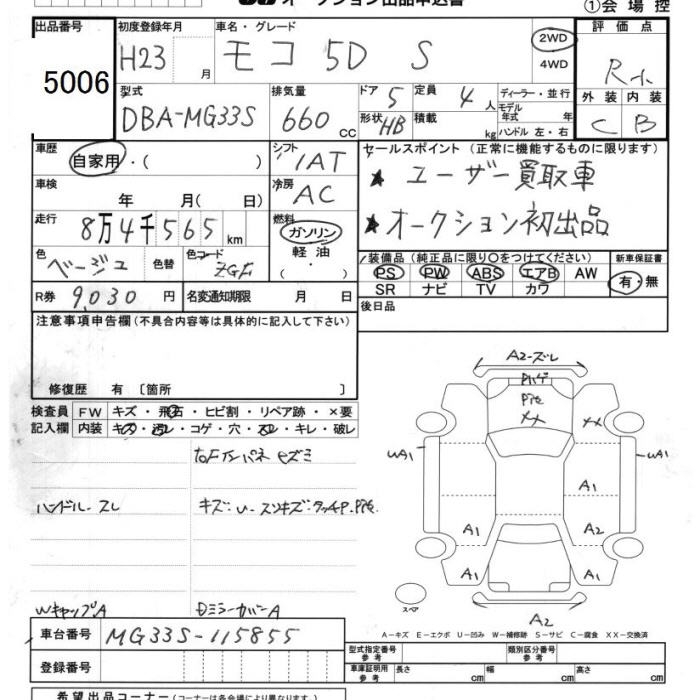 オークション出品申込書
①会場控
出品番号 初度登録年月 車名・グレード 評価点
5006 H23 月 モコ 5D S 2WD 4WD R小
型式 排気量 ドア 定員 ディーラー・並行 外装 内装
DBA-MG33S 660 CC 5 4人 モデル年式 年 C B
形状 HB 積載 kg ハンドル 左・右
車歴 シフト セールスポイント (正常に機能するものに限ります)
自家用・( ) IAT ★ ユーザー買取車
車検 冷房
年 月( 日) AC ★ オークション初出品
走行 燃料
8万4千565km ガソリン
色 色替 色コード 軽油 装備品 (純正品に限り○をつけてください) 新車保証書
ベージュ ( ・ ) PS PW ABS エアB AW 有・無
SR ナビ TV カワ
R券 9,030円 名変通知期限 月 日
後日品
注意事項申告欄 (不具合内容等は具体的に記入して下さい)
修復歴 有 [箇所 ]
検査員 FW キズ・飛石・ヒビ割・リペア跡・×要
記入欄 内装 キズ・汚レ・コゲ・穴・スレ・キレ・破レ
A2-ズレ
XX
XX
UA1
UA1
A1
A1
A2
A1
A1
ハンドル-スレ
スペア
WキャップA
DミラーカバーA
A2
A-キズ E-エクボ U-凹み W-補修跡 S-サビ C-腐食 XX-交換済
車台番号 MG33S-115855
型式指定番号 参考 類別区分番号 参考
登録番号
車庫証明用 参考 長さ cm 幅 cm 高さ cm
希望出品コーナー (コーナーは各会場により異なります)